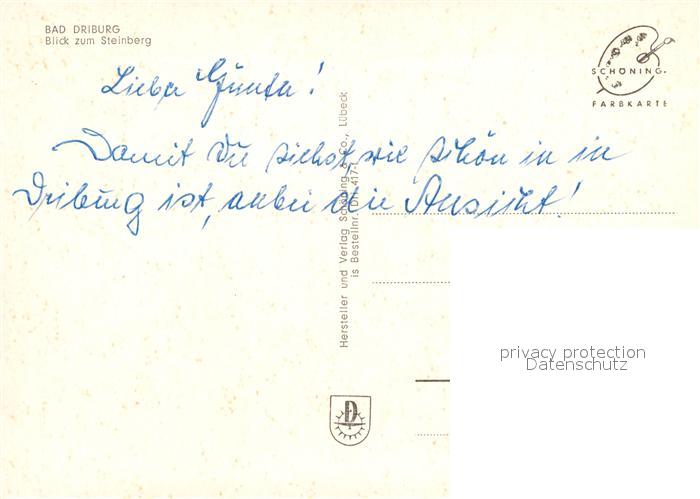 BAD DRIBURG
Blick zum Steinberg
SCHÖNING
FARBKARTE
Liebe Günta!
Damit Du siehst, wie schön in in
Driburg ist, anbei die Ansicht!
Hersteller und Verlag Schöning & Co., Lübeck
is Bestellnr. Dri. 417-1
privacy protection
Datenschutz